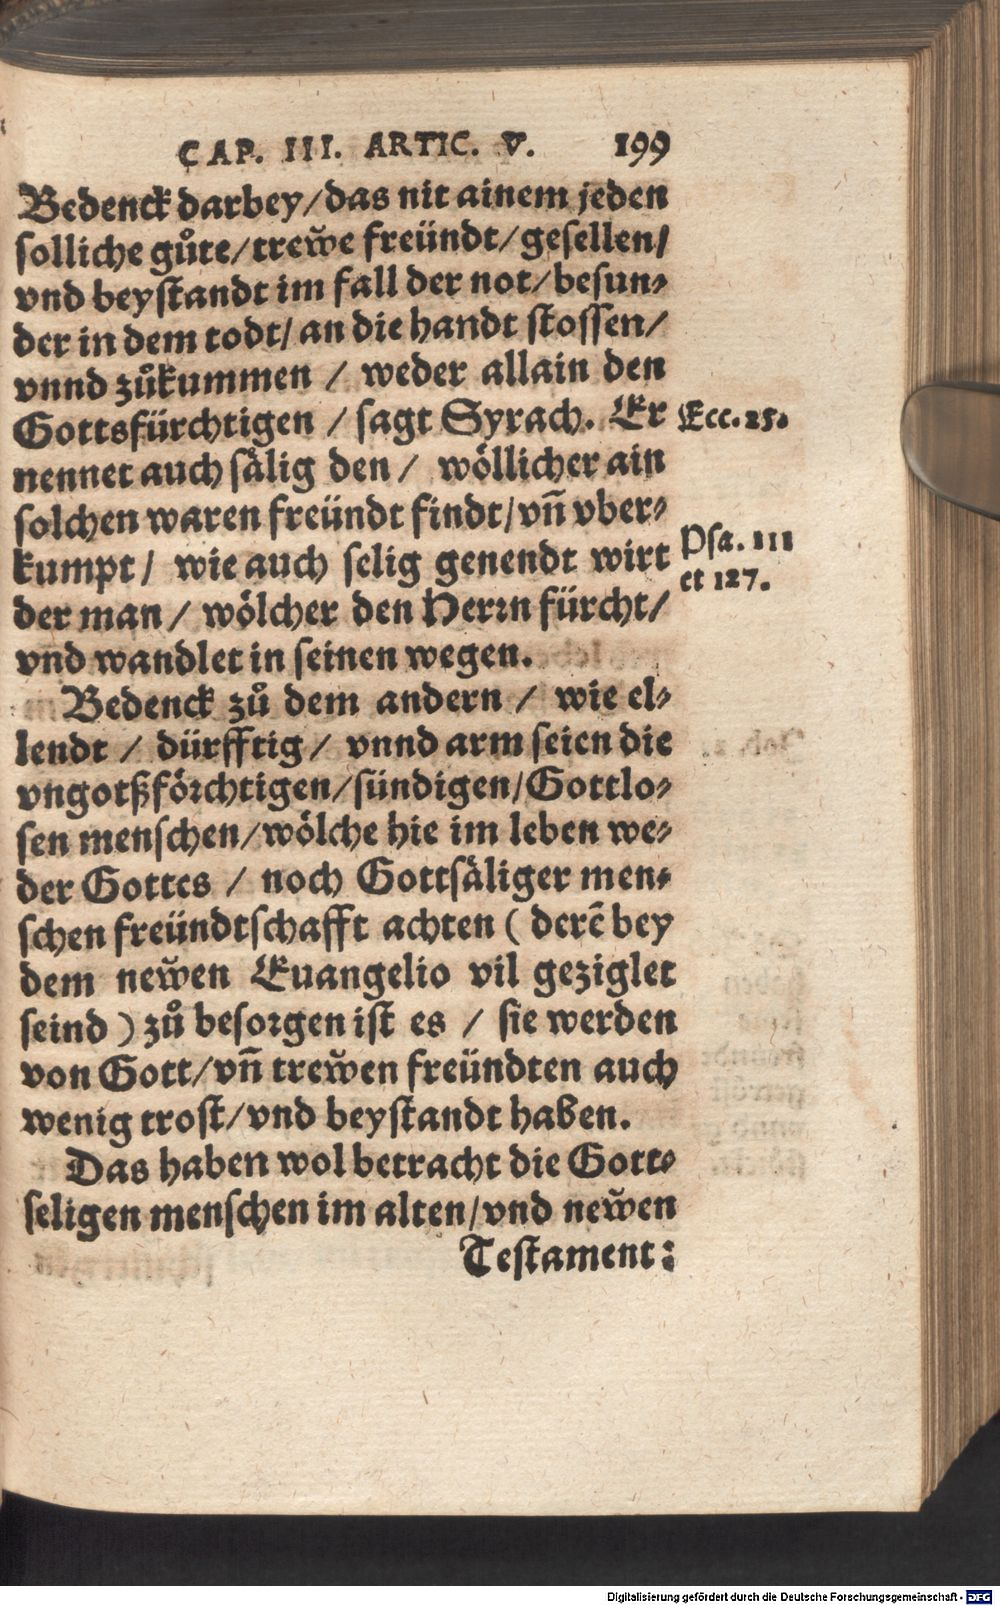 CAP. III. ARTIC. V. 199
Bedenck darbey/das nit ainem jeden
solliche gůte/trew̆e freündt/gesellen/
vnd beystandt im fall der not/besun⸗
der in dem todt/an die handt stossen/
vnnd zůkummen / weder allain den
Gottsfürchtigen / sagt Syrach. Er
Ecc. 25.
nennet auch sälig den / wöllicher ain
solchen waren freündt findt/vñ vber⸗
kumpt/ wie auch selig genendt wirt
Psa. 111
et 127.
der man / wölcher den Herrn fürcht/
vnd wandlet in seinen wegen.
Bedenck zů dem andern / wie el⸗
lendt / dürfftig / vnnd arm seien die
vngotßförchtigen/sündigen/Gottlo⸗
sen menschen/wölche hie im leben we⸗
der Gottes / noch Gottsäliger men⸗
schen freündtschafft achten ( derē bey
dem new̆en Euangelio vil geziglet
seind ) zů besorgen ist es / sie werden
von Gott/vñ trew̆en freündten auch
wenig trost/vnd beystandt haben.
Das haben wol betracht die Gott⸗
seligen menschen im alten/vnd new̆en
Testament:
Digitalisierung gefördert durch die Deutsche Forschungsgemeinschaft - DFG